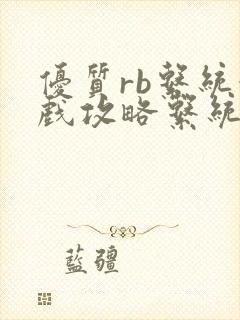 優質rb繫統
戲攻略繫統
藍疆